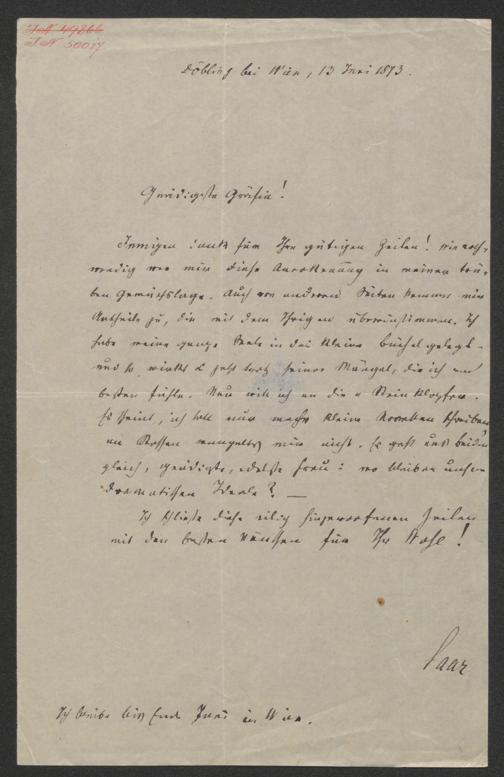 I.N. 49866
I.N. 50017
Döbling bei Wien, 13 Juni 1873.
Gnädigste Gräfin!
Innigen Dank für Ihre gütigen Zeilen! Wie noth-
wendig war mir diese Anerkennung in meiner trü-
ben Gemüthslage. Auch von anderen Seiten kommen mir
Urtheile zu, die mit dem Ihrigen übereinstimmen. Ich
habe meine ganze Seele in das kleine Büchel gelegt -
und so wirkt es jetzt trotz seiner Mängel, die ich am
besten fühle. Nun will ich an die "Steinklopfer".
Es scheint, ich soll nur mehr kleine Novellen schreiben
an Stoffen mangelt's mir nicht. Es geht uns beiden
gleich, gnädigste, edelste Frau: wo bleiben unsere
dramatischen Ideale? —
Ich schließe diese eilig hingeworfenen Zeilen
mit den besten Wünschen für Ihr Wohl!
Saar
Ich bleibe bis Ende Juni in Wien.